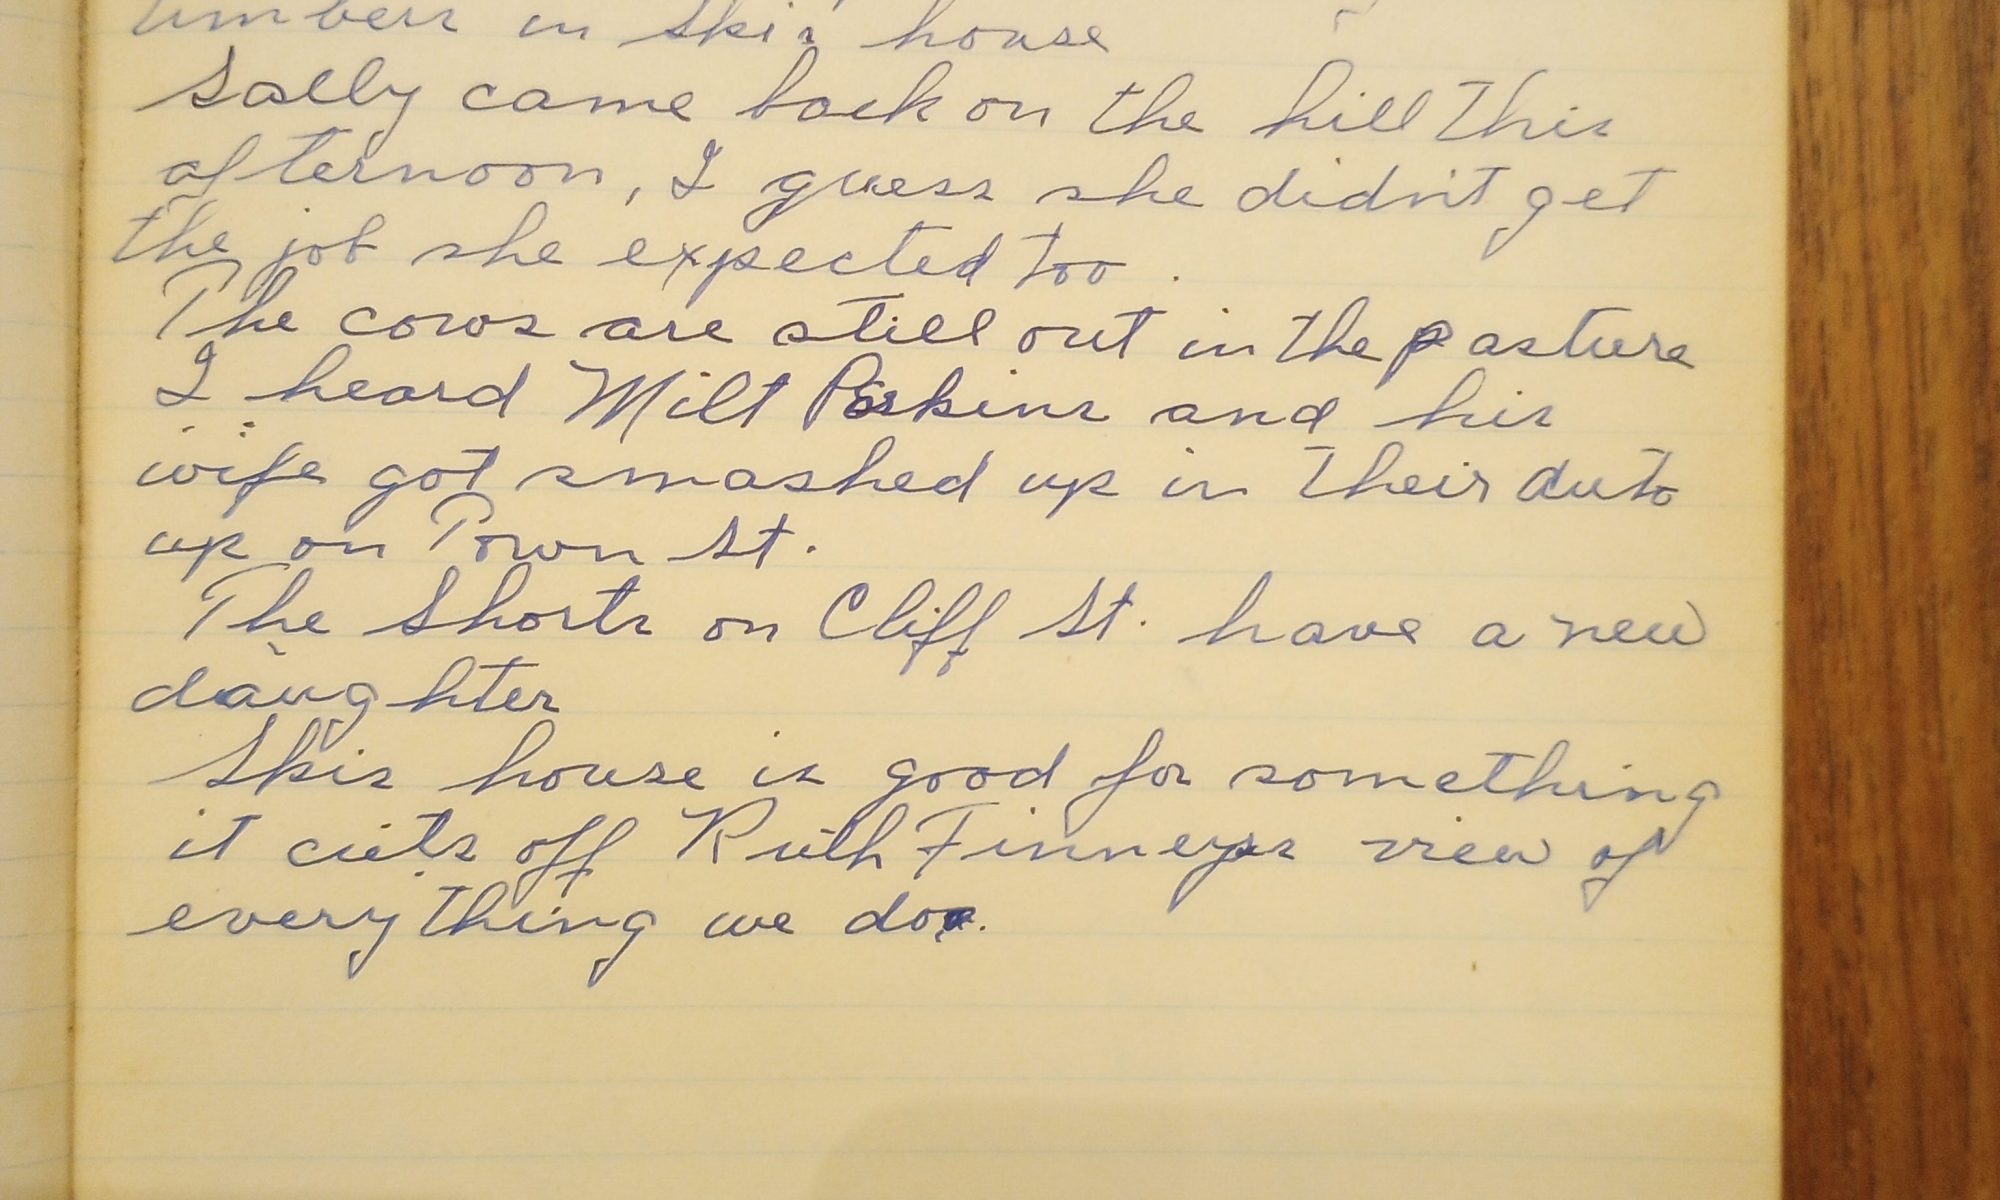 timbers in Skis house
Sally came back on the hill this
afternoon, I guess she didn't get
the job she expected too.
The cows are still out in the pasture
I heard Milt Perkins and his
wife got smashed up in their auto
up on Town St.
The Shorts on Cliff St. have a new
daughter
Skis house is good for something
it cuts off Ruth Finneys view of
everything we do.